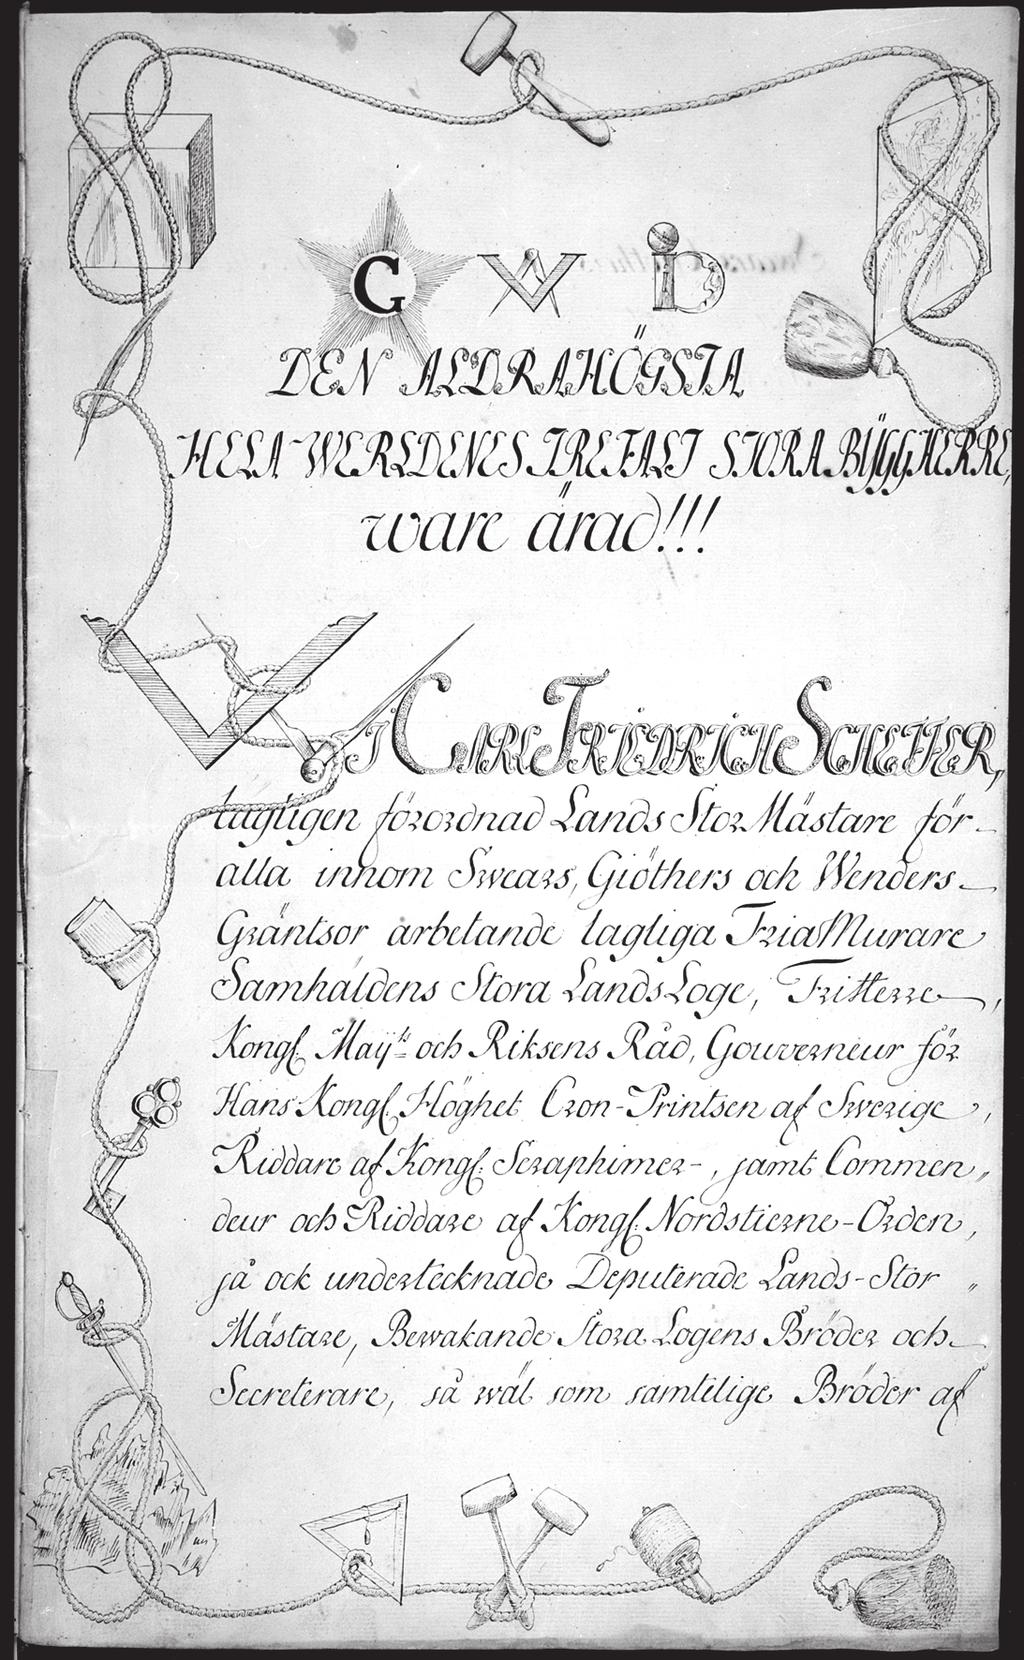 G V D
DEN ALDRAHÖGSTA
HELA WERLDENES TREFALT STORA BŸGGHERRE,
ware ärad!!!
I CARL FRIEDRICH SCHEFFER,
lagligen förordnad Lands Stor Mästare för
alla innom Swears, Giöthers och Wenders
Gräntsor arbetande lagliga Fria Murare
Samhäldens Stora Lands Loge, Friherre,
Kongl. Maÿ:ts och Riksens Råd, Gouverneur för
Hans Kongl. Höghet Cron-Printsen af Swerige,
Riddare af Kongl: Seraphimer-, samt Commen„
deur och Riddare af Kongl. Nordstierne-Orden,
så ock undertecknade Deputerade Lands-Stor„
Mästare, Bewakande Stora Logens Bröder och
Secreterare, så wäl som samtelige Bröder af